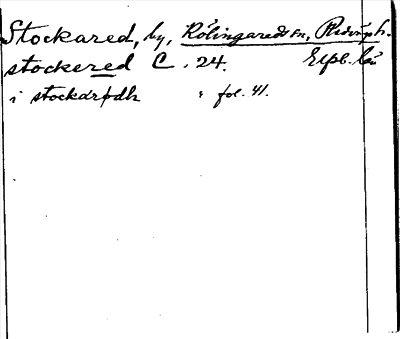 Stockared, by, Rölingareds sn,
stockered C. 24. Elfsb. län
i stockarødh : fol. 41.